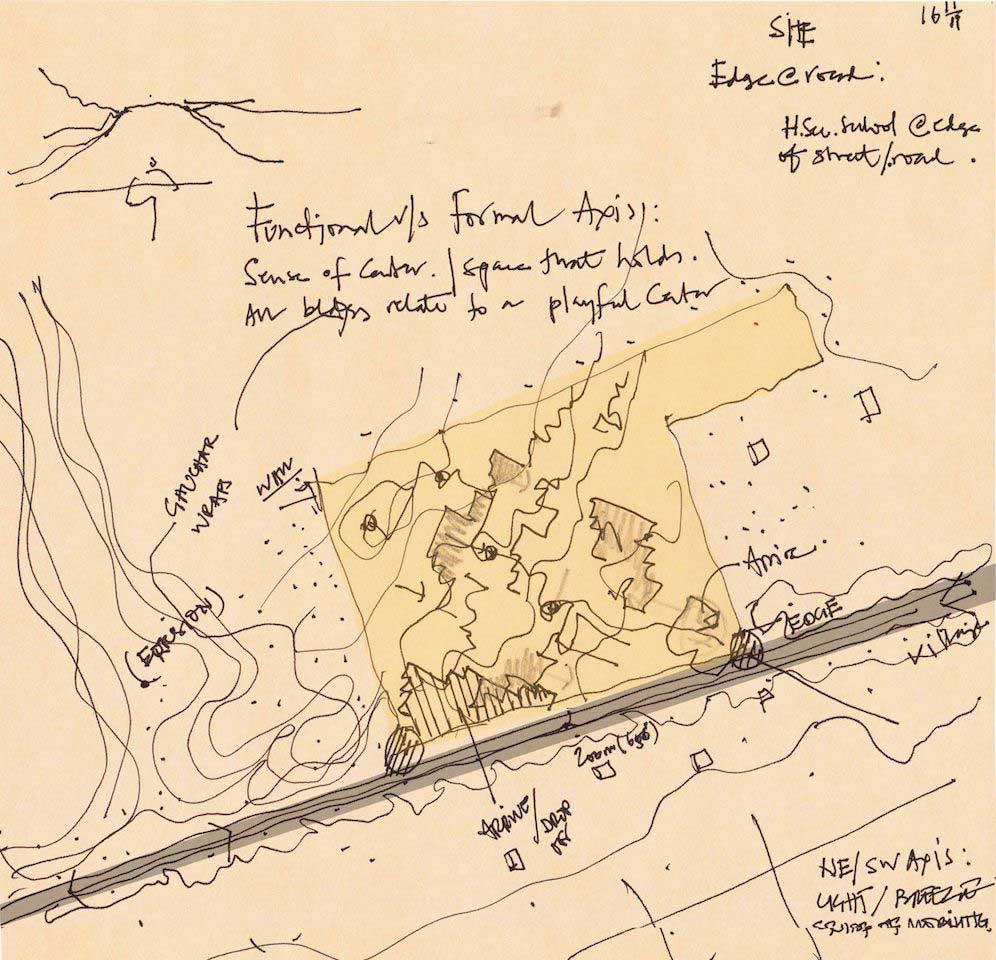 16 11/19
SITE
Edge @ road:
H.Sec. School @ edge
of street/road.
Functional v/s Formal Axis:
Sense of Center. / space that holds.
All bldgs relate to a playful Center
N
GAUCHAR
WRAPS
EROSION
Arrive
EDGE
Village
200m (650)
ARRIVE/
DROP
OFF
NE/SW AXIS:
LIGHT/BREEZE